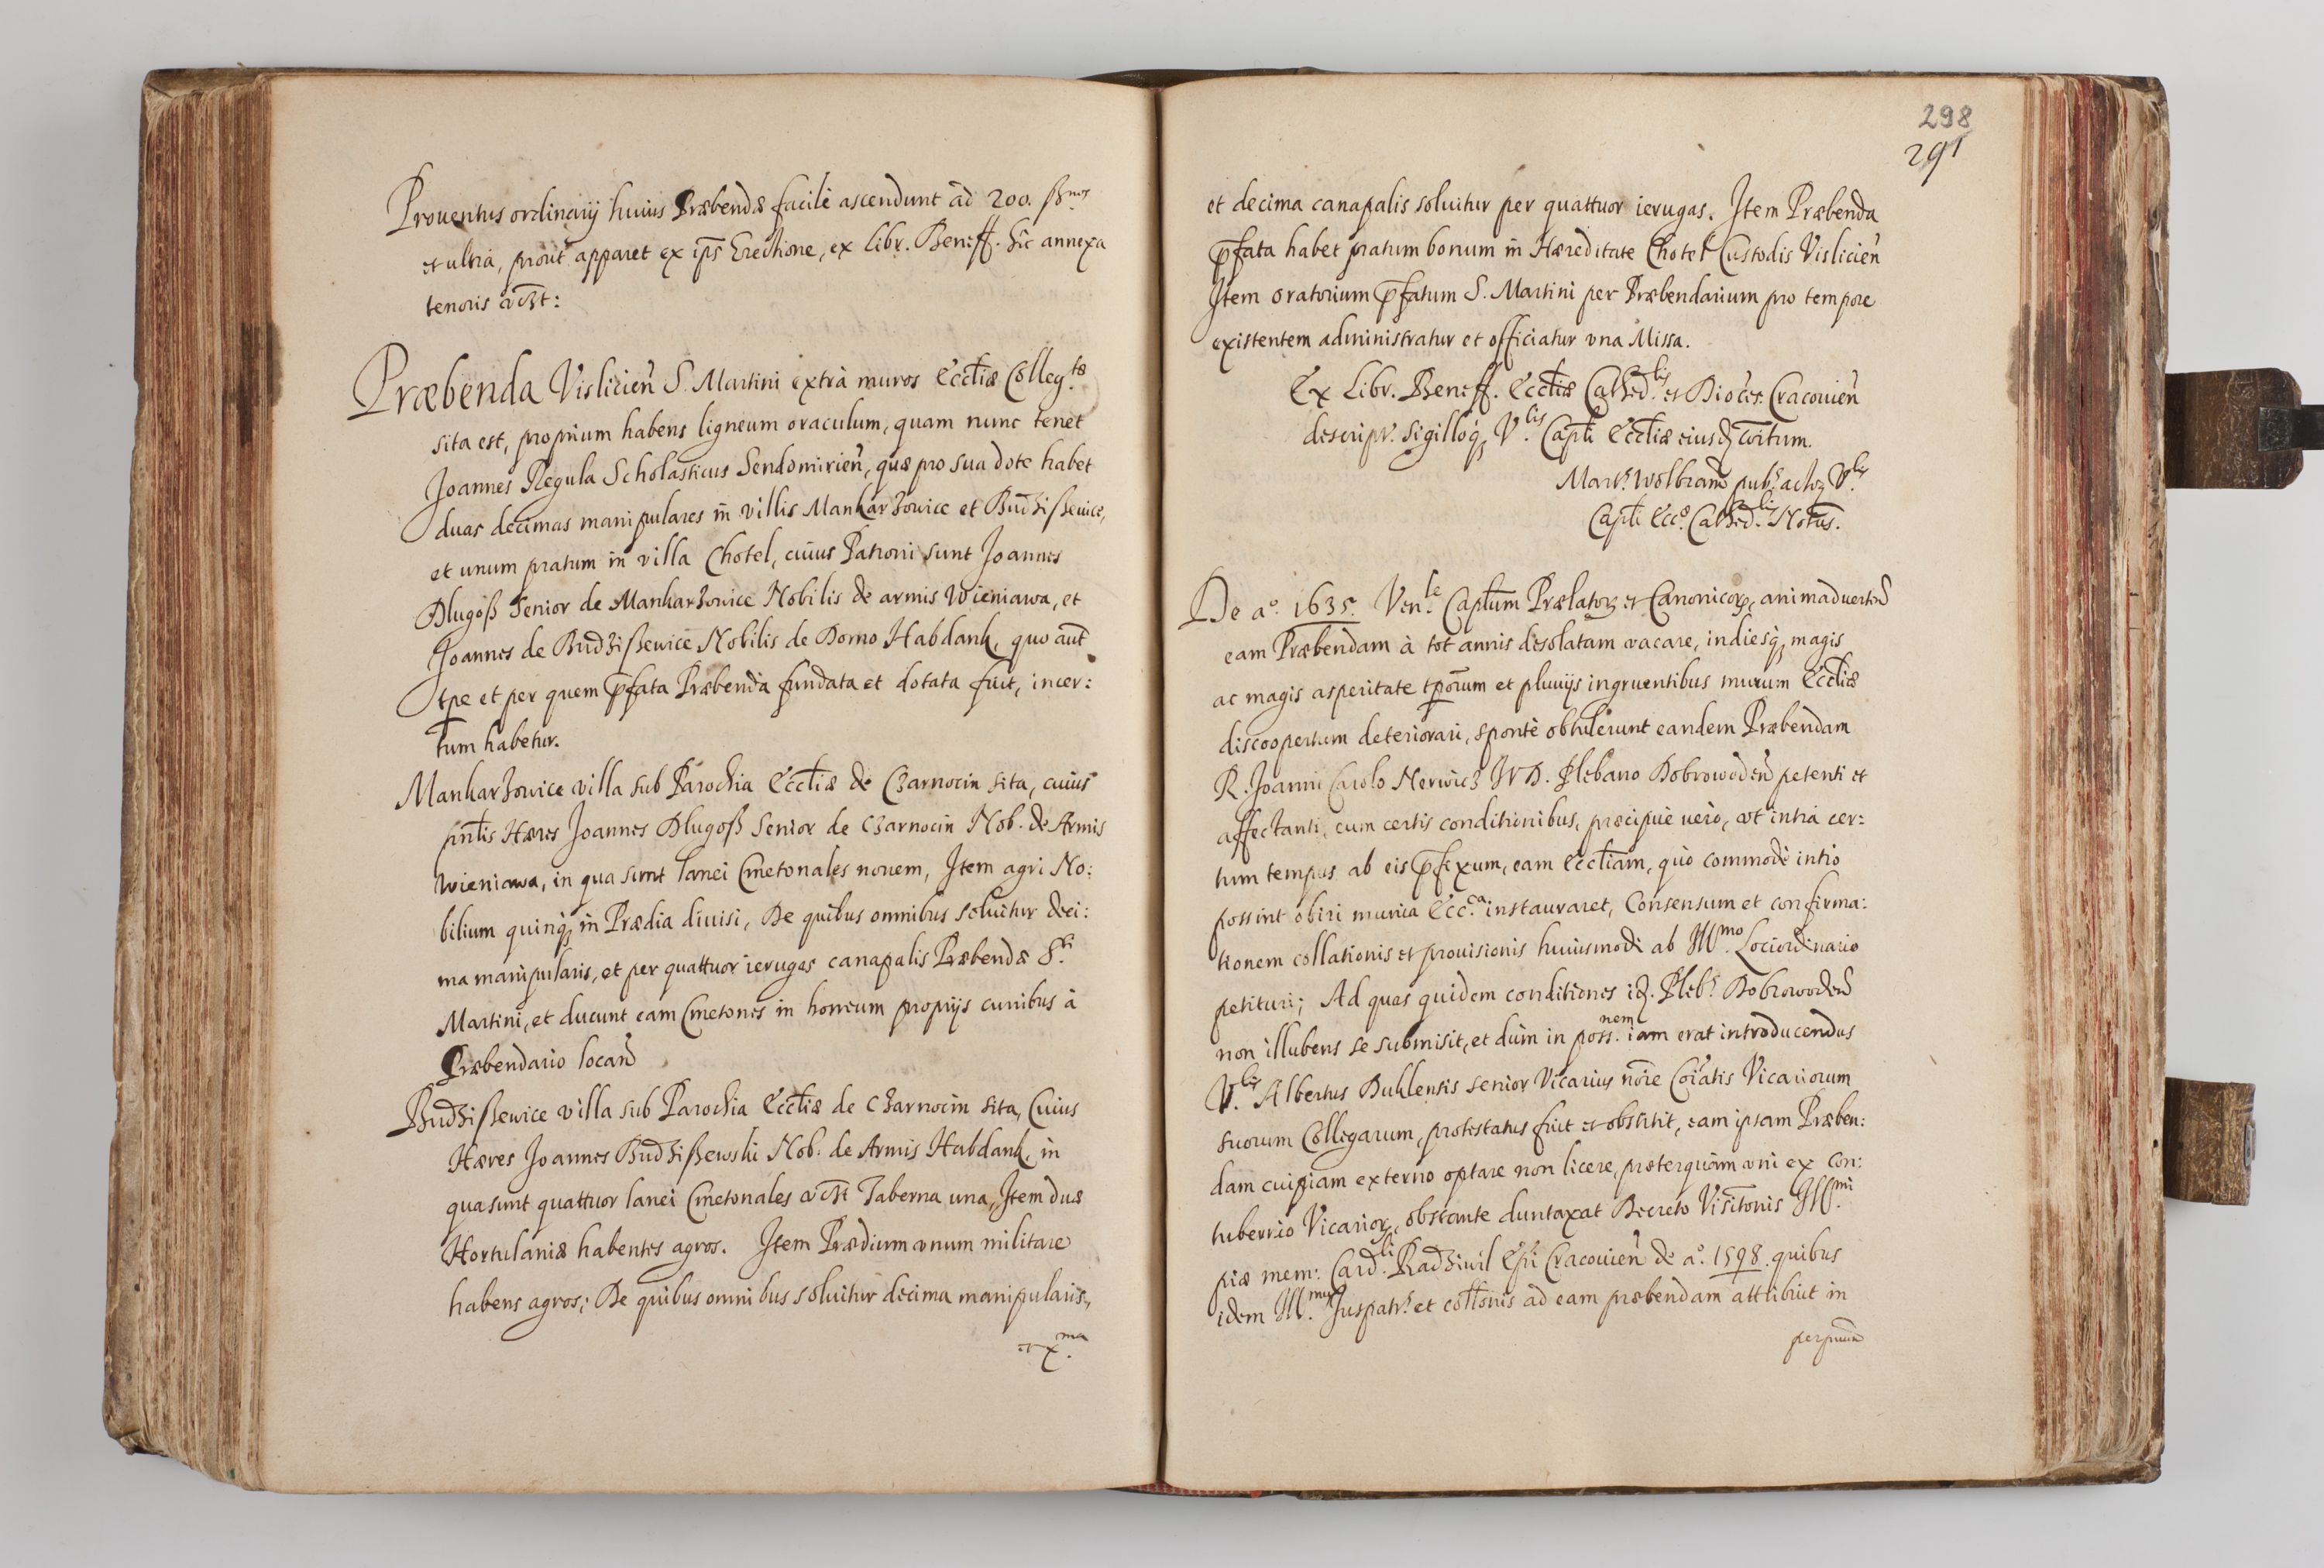 Prouentus ordinarij huius Præbendæ facile ascendunt ad 200. flnos
et ultra, prout apparet ex ips Erectione, ex libr. Beneff. hic annexa
tenoris vz̃t:
Præbenda Vislicień S. Martini extra muros Eccłiæ Collegtæ
sita est, proprium habens ligneum oraculum, quam nunc tenet
Joannes Regula Scholasticus Sendomirień, quæ pro sua dote habet
duas decimas manipulares in villis Mankarzowice et Budziszewice,
et unum pratum in villa Chotel, cuius Patroni sunt Joannes
Dlugoß Senior de Mankarzowice Nobilis de armis Wieniawa, et
Joannes de Budzißewice Nobilis de Domo Habdank, quo aut̃
tp̃e et per quem p̃fata Præbenda fundata et dotata fuit, incer:
tum habetur.
Mankarzowice villa sub Parochia Eccłiæ de Czarnocin sita, cuius
pn̄tis Hæres Joannes Dlugoß Senior de Czarnocin Nob. de Armis
Wieniawa, in qua sunt lanei Cmetonales nouem, Item agri No:
bilium quinq; in Prædia diuisi, De quibus omnibus soluitur deci:
ma manipularis, et per quattuor ierugas canapalis Præbendæ S.ti
Martini, et ducunt eam Cmetones in horreum proprijs curribus à
Præbendario locań
Budzißewice villa sub Parochia Eccłiæ de Czarnocin sita, Cuius
Hæres Joannes Budzißewski Nob. de Armis Habdank, in
qua sunt quattuor lanei Cmetonales vz̃t Taberna una, Item duæ
Hortulaniæ habentes agros. Item Prædium vnum militare
habens agros; De quibus omnibus soluitur decima manipularis,
et x.ma
298
291
et decima canapalis soluitur per quattuor ierugas. Item Præbenda
p̃fata habet pratum bonum in Hæreditate Chotel Custodis Vislicień
Item oratorium p̃fatum S. Martini per Præbendarium pro tempore
existentem administratur et officiatur vna Missa.
Ex Libr. Beneff. Eccłiæ Cathed.lis et Diœces. Cracouień
descript. sigilloq; V.lis Capłi Eccłiæ eiusd com̃itum.
Mart.s Wolbram pub.s actor; V.lis
Capłi Ecc.æ Cathed.lis Notus.
De a.o 1635. Ven.le Capłum Prælator; et Canonicor; animaduerteñ
eam Præbendam à tot annis desolatam vacare, indiesq; magis
ac magis asperitate tp̃orum et pluuijs ingruentibus murum Eccłiæ
discoopertum deteriorari, sponte obtulerunt eandem Præbendam
R. Joanni Carolo Nerwicz IVD. Plebano Dobrowodeñ petenti et
affectanti, cum certis conditionibus, præcipuè uerò, vt intra cer:
tum tempus ab eis p̃fixum, eam Eccłiam, quò commodè intro
possint obiri munia Ecc.ca instauraret, Consensum et confirma:
tionem collationis et prouisionis huiusmodi ab Ill.mo Lociordinario
petituri; Ad quas quidem conditiones id. Pleb.s Dobrowodeñ
non illubens se submisit, et dum in poss.nem iam erat introducendus
V.lis Albertus Duklensis senior Vicarius nõie Coĩatis Vicariorum
suorum Collegarum, protestatus fuit et obstitit, eam ipsam Præben:
dam cuipiam externo optare non licere, præterquàm vni ex con:
tubernio Vicarior;, obstante duntaxat Decreto Visitonis Ill.mi
piæ mem: Card.li Radziwil Epi Cracouień de a.o 1598. quibus
idem Ill.mus Juspatr.s et col̃tonis ad eam præbendam attribuit in
perpetuũ